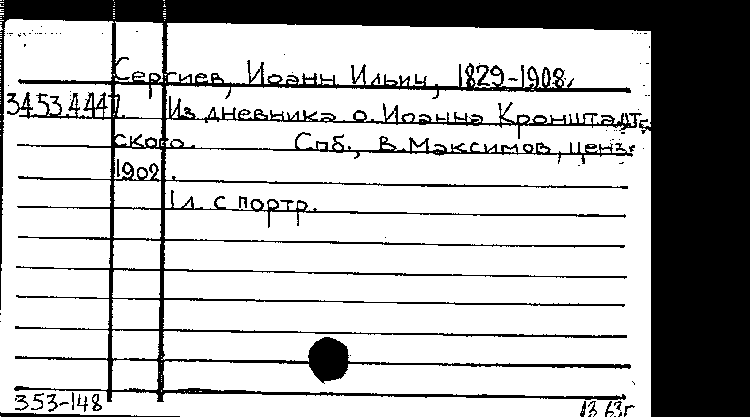 Сергиев, Иоанн Ильич, 1829-1908.
34.53.4.447. Из дневника о. Иоанна Кронштадт-
ского. Спб., В. Максимов, ценз.
1902.
1 л. с портр.
353-148
13 63г